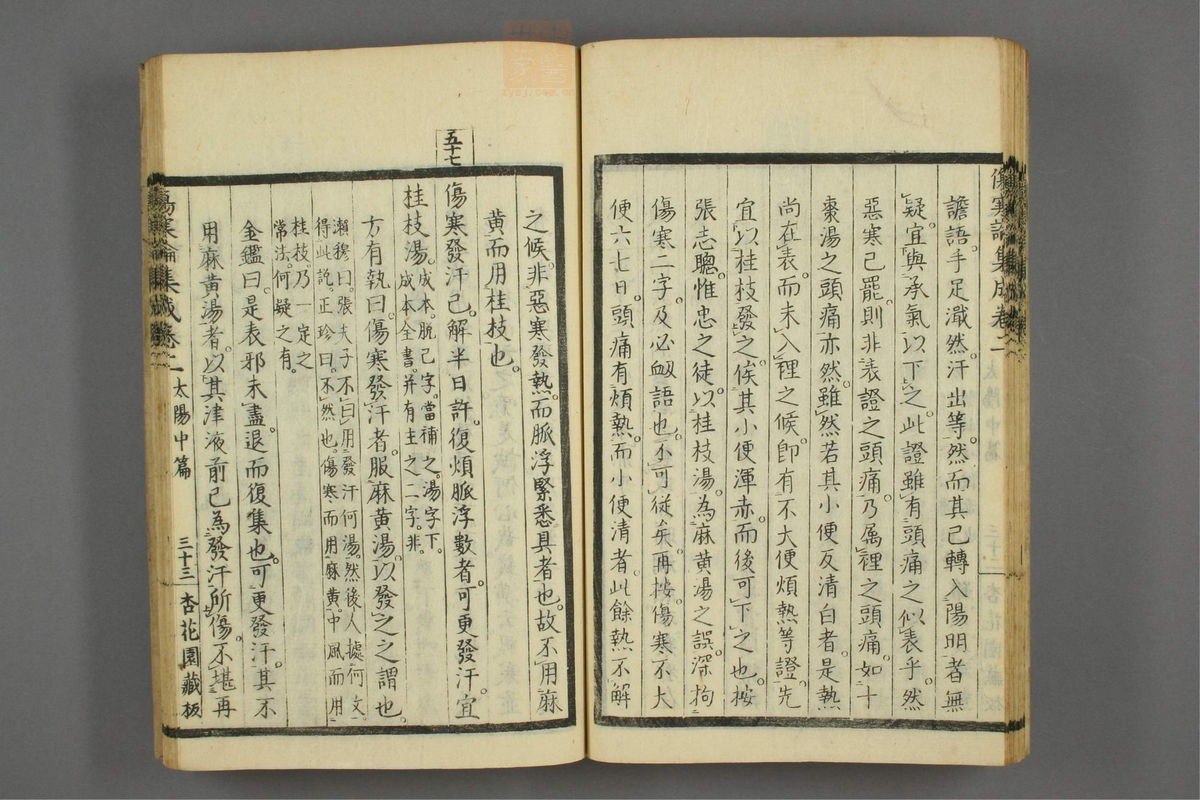 傷寒論集成卷二
譫語手足濈然汗出等然而其已轉入陽明者無
疑宜與承氣以下之此證雖有頭痛之似表乎然
惡寒已罷則非表證之頭痛乃属裡之頭痛如十
棗湯之頭痛亦然雖然若其小便反清白者是熱
尚在表而未入裡之候即有不大便煩熱等證先
宜以桂枝發之俟其小便渾赤而後可下之也按
張志聰惟忠之徒以桂枝湯為麻黄湯之誤深拘
傷寒二字及必衂語也不可從矣再按傷寒不大
便六七日頭痛有煩熱而小便清者此餘熱不解
之候非惡寒發熱而脈浮緊悉具者也故不用麻
黄而用桂枝也
五十七
傷寒發汗已解半日許復煩脈浮數者可更發汗宜
桂枝湯成本脫已字當補之湯字下
成本全書并有主之二字非
方有執曰傷寒發汗者服麻黄湯以發之之謂也
瀨穆曰張夫子不曰用發汗何湯然後人據何文
得此說正珍曰不然也傷寒而用麻黄中風而用
桂枝乃一定之
常法何疑之有
金鑑曰是表邪未盡退而復集也可更發汗其不
用麻黄湯者以其津液前已為發汗所傷不堪再
傷寒論集成卷二 太陽中篇 三十三 杏花園藏板